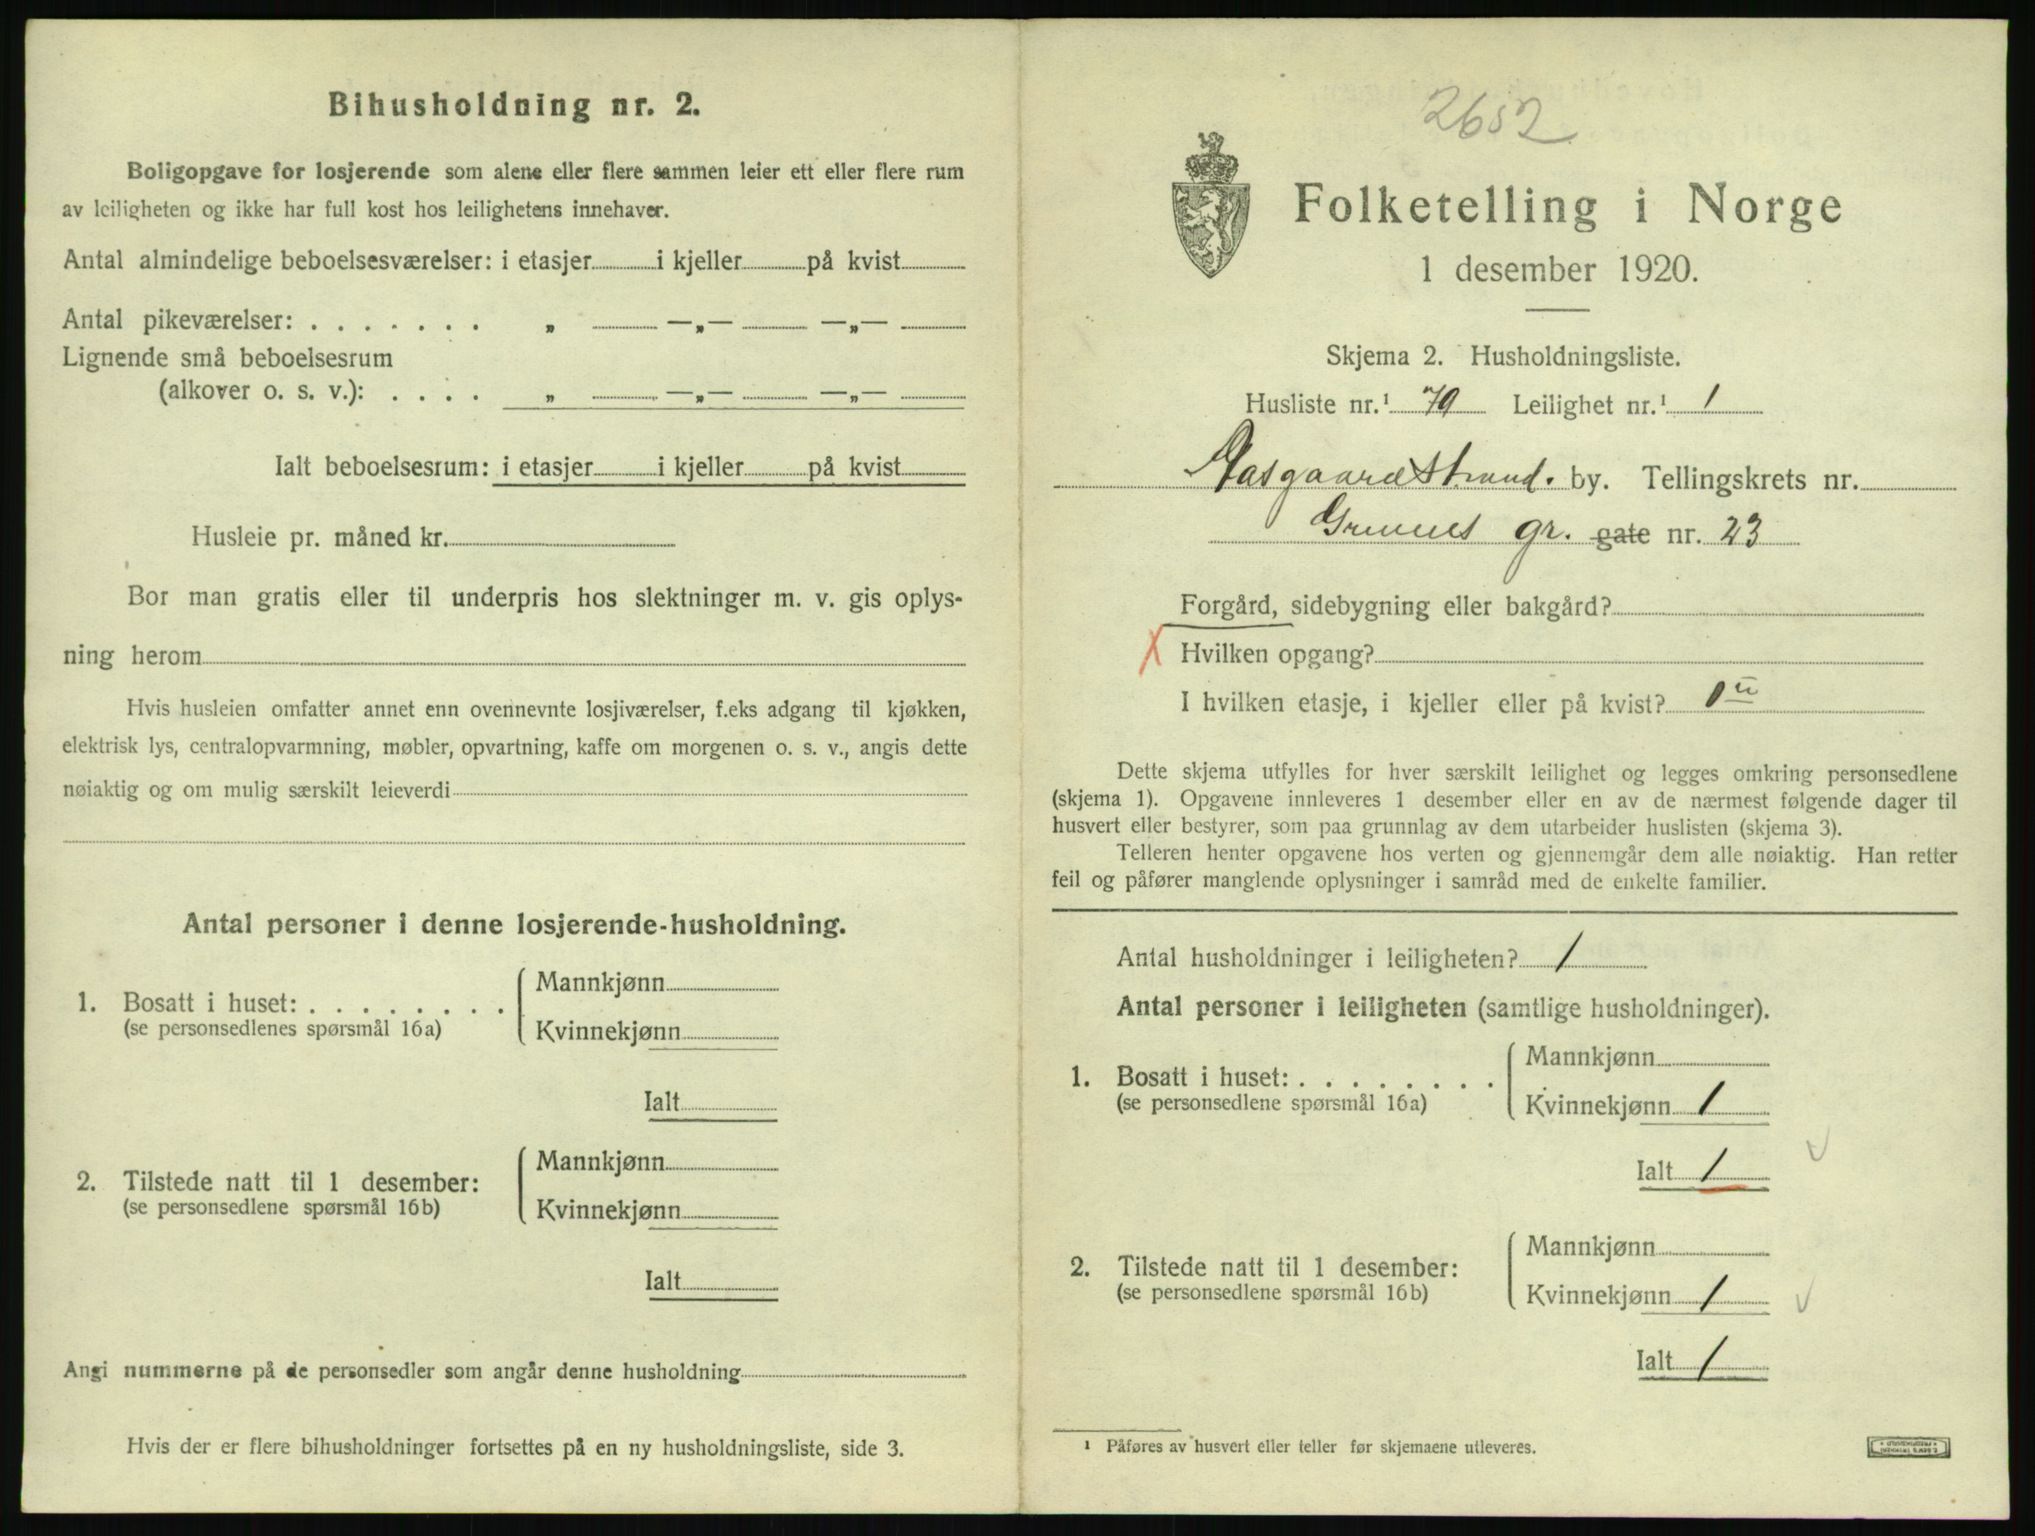 Bihusholdning nr. 2.
Boligopgave for losjerende som alene eller flere sammen leier ett eller flere rum
av leiligheten og ikke har full kost hos leilighetens innehaver.
Antal almindelige beboelsesværelser: i etasjer i kjeller på kvist
Antal pikeværelser: . . . . . . . „ —„— —„—
Lignende små beboelsesrum
(alkover o. s. v.): . . . . „ —„— —„—
Ialt beboelsesrum: i etasjer i kjeller på kvist
Husleie pr. måned kr.
Bor man gratis eller til underpris hos slektninger m. v. gis oplys-
ning herom
Hvis husleien omfatter annet enn ovennevnte losjiværelser, f.eks adgang til kjøkken,
elektrisk lys, centralopvarmning, møbler, opvartning, kaffe om morgenen o. s. v., angis dette
nøiaktig og om mulig særskilt leieverdi
Antal personer i denne losjerende-husholdning.
1. Bosatt i huset: . . . . . . . .
(se personsedlenes spørsmål 16a)
Mannkjønn
Kvinnekjønn
Ialt
2. Tilstede natt til 1 desember:
(se personsedlene spørsmål 16b)
Mannkjønn
Kvinnekjønn
Ialt
Angi nummerne på de personsedler som angår denne husholdning
Hvis der er flere bihusholdninger fortsettes på en ny husholdningsliste, side 3.
2652
Folketelling i Norge
1 desember 1920.
Skjema 2. Husholdningsliste.
Husliste nr.¹ 70 Leilighet nr.¹ 1
Aasgaardstrand. by. Tellingskrets nr.
gr. gate nr. 23
Forgård, sidebygning eller bakgård?
X Hvilken opgang?
I hvilken etasje, i kjeller eller på kvist?
Dette skjema utfylles for hver særskilt leilighet og legges omkring personsedlene
(skjema 1). Opgavene innleveres 1 desember eller en av de nærmest følgende dager til
husvert eller bestyrer, som paa grunnlag av dem utarbeider huslisten (skjema 3).
Telleren henter opgavene hos verten og gjennemgår dem alle nøiaktig. Han retter
feil og påfører manglende oplysninger i samråd med de enkelte familier.
Antal husholdninger i leiligheten? 1
Antal personer i leiligheten (samtlige husholdninger).
1. Bosatt i huset: . . . . . . . .
(se personsedlene spørsmål 16a)
Mannkjønn
Kvinnekjønn 1
Ialt 1
2. Tilstede natt til 1 desember:
(se personsedlene spørsmål 16b)
Mannkjønn
Kvinnekjønn 1
Ialt 1
¹ Påføres av husvert eller teller før skjemaene utleveres.